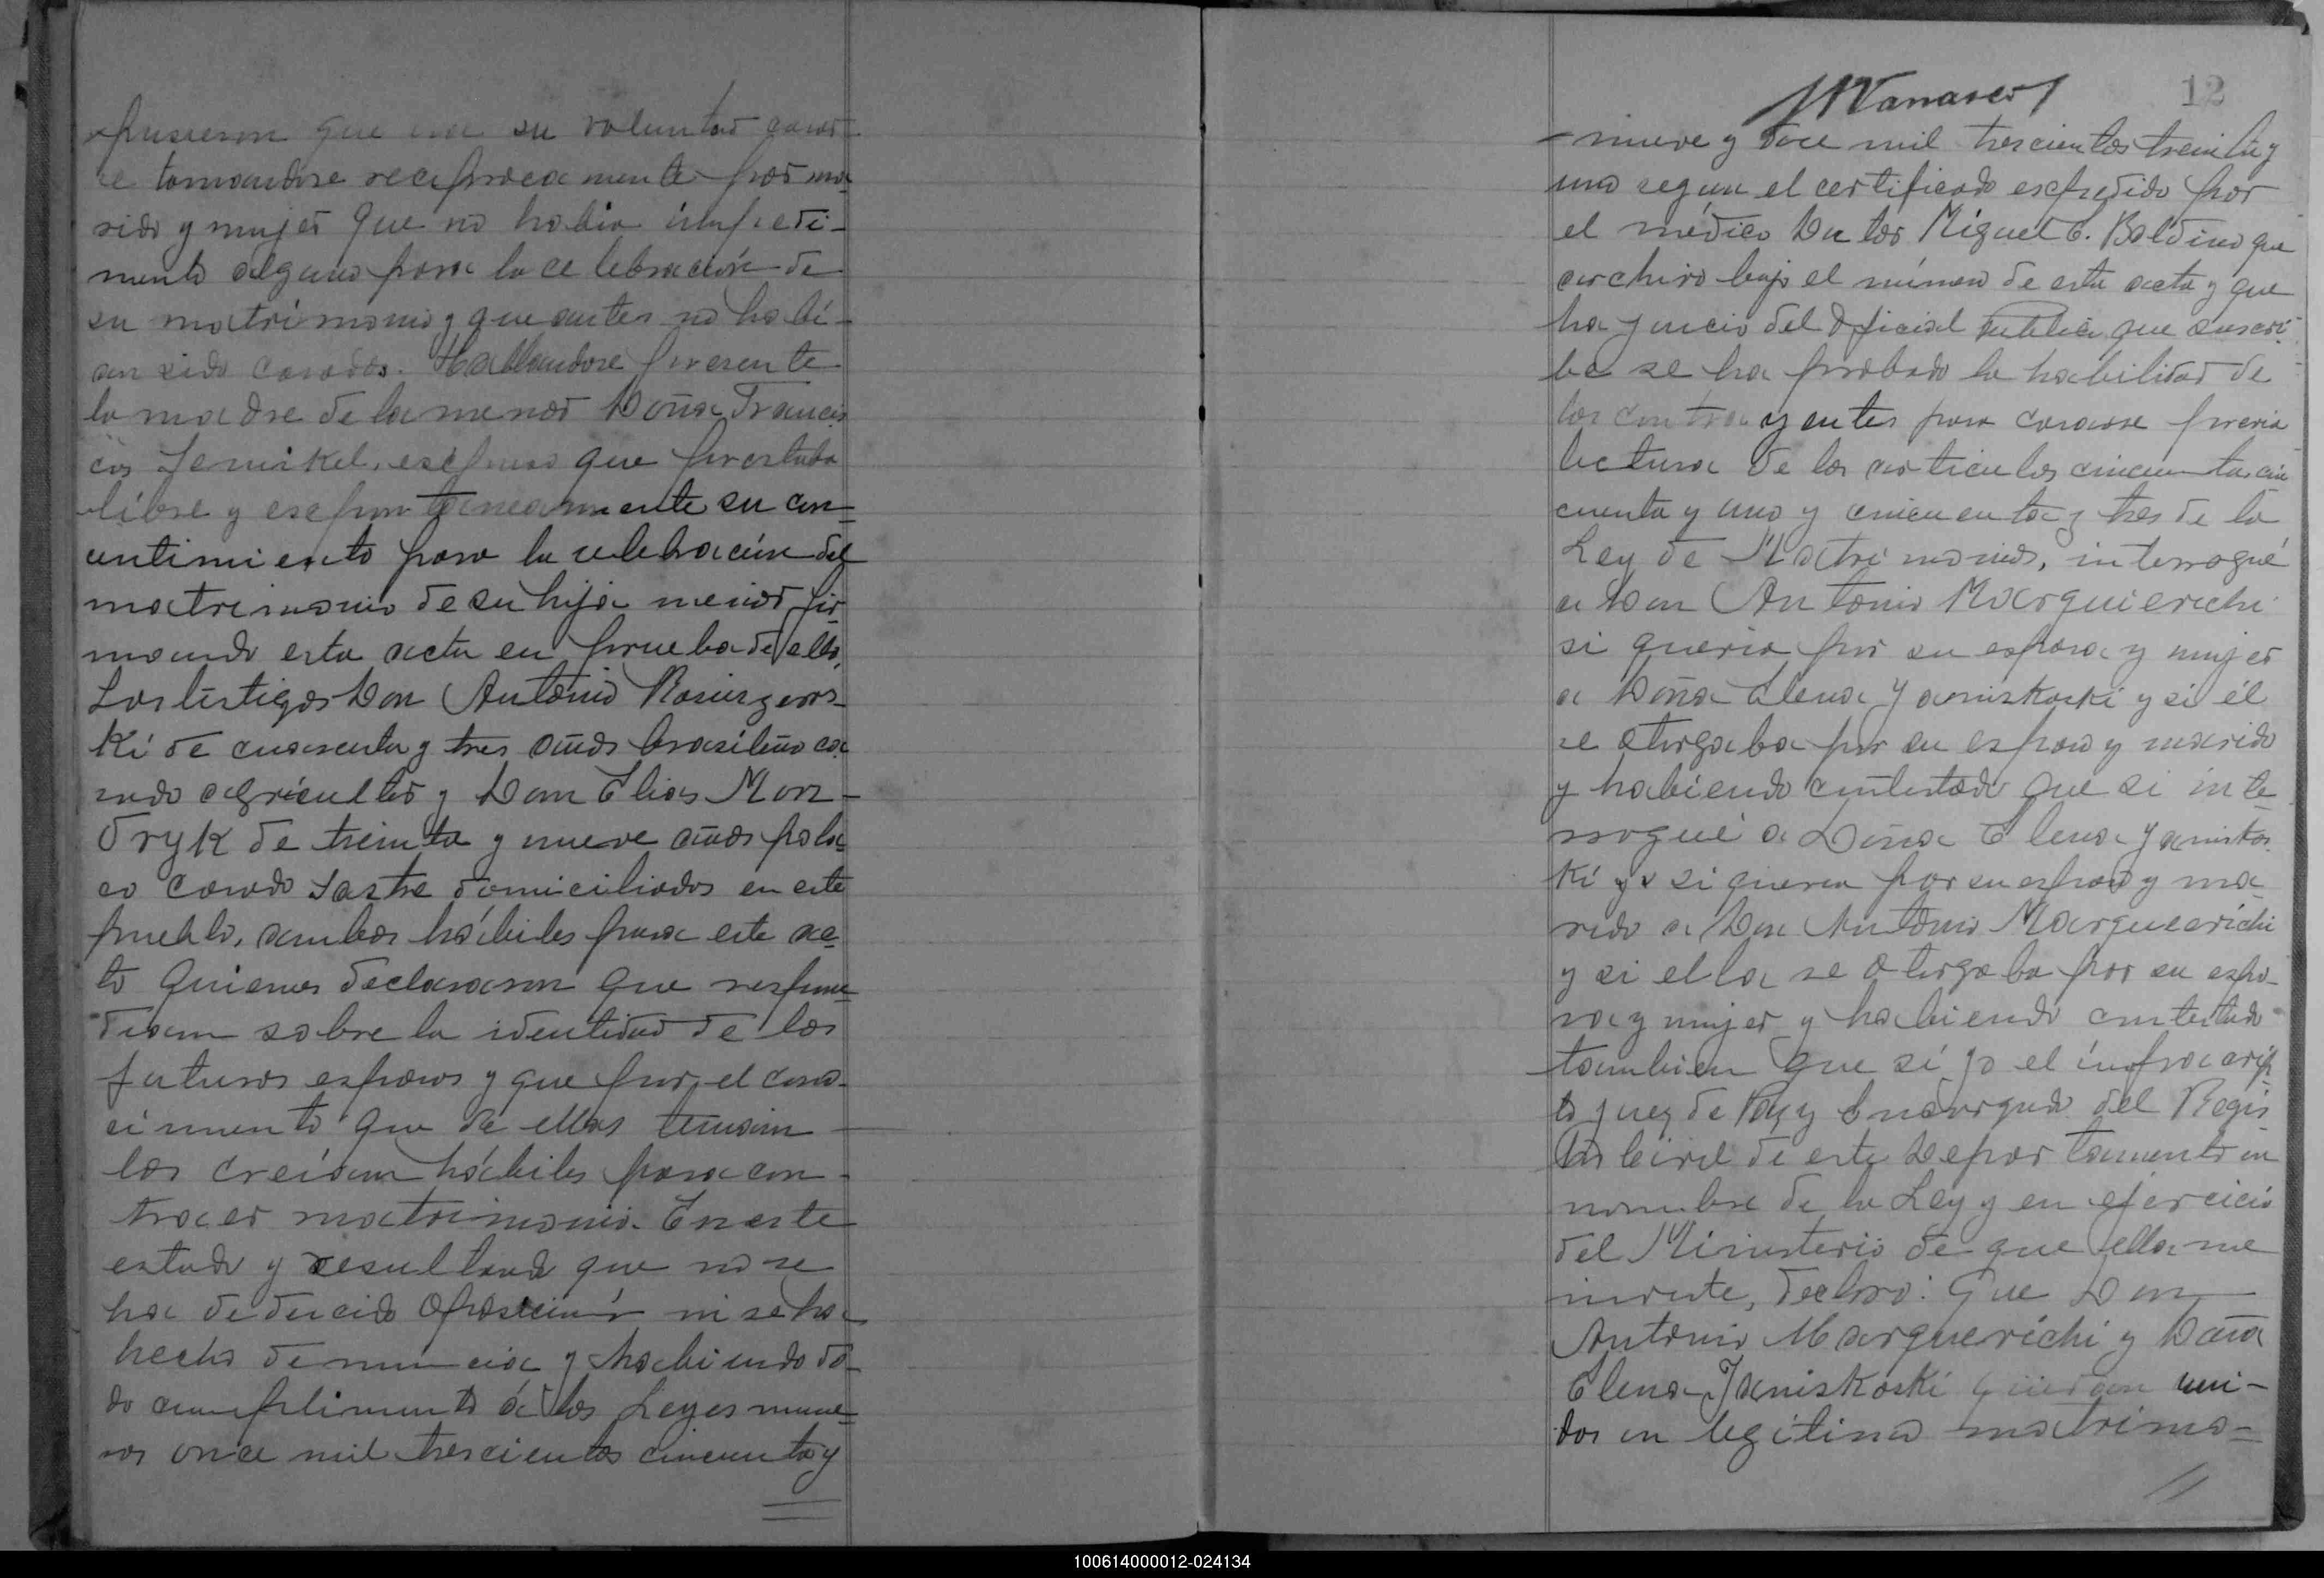 expusieron que era su voluntad casar-
se tomandose reciprocamente por ma-
rido y mujer que no habia impedi-
mento alguno para la celebración de
su matrimonio y que antes no habi-
an sido casados. Hallandose presente
la madre de la menor Doña Francis
ca Jemikel, expuso que prestaba
libre y expontaneamente su con-
sentimiento para la celebración del
matrimonio de su hija menor fir-
mando esta acta en prueba de ello,
Los testigos Don Antonio Rosinzews-
ki de cuarenta y tres años brasileño ca
sado agricultor y Don Elias Mon-
dryk de treinta y nueve años pola-
co casado sastre domiciliados en este
pueblo, ambos hábiles para este ac-
to quienes declararon que respon-
dian sobre la identidad de los
futuros esposos y que por el cono-
cimiento que de ellos tenian
los creían hábiles para con-
traer matrimonio. En este
estado y resultando que no se
ha deducido oposición ni se ha
hecho denuncia y habiendo da-
do cumplimiento á las Leyes nume-
ros once mil trescientos cincuenta y
12
- nueve y doce mil trescientos treinta y
uno segun el certificado expedido por
el médico Doctor Miguel C. Baldino que
archivo bajo el número de esta acta y que
ha juicio del Oficial Publico que suscri-
be se ha probado la habilidad de
los contrayentes para casarse previa
lectura de los articulos cincuenta cin
cuenta y uno y cincuenta y tres de la
Ley de Matrimonios, interrogué
a Don Antonio Marquierichi
si queria por su esposa y mujer
a Doña Elena Janiskoski y si él
se otorgaba por su esposo y marido
y habiendo contestado que si inte
rrogué a Doña Elena Janiskos
ki y si queria por su esposo y ma
rido a Don Antonio Marguerichi
y si ella se otorgaba por su espo-
sa y mujer y habiendo contestado
tambien que sí yo el infrascrip
to juez de Paz y Encargado del Regis
tro Civil de este Departamento en
nombre de la Ley y en ejercicio
del Ministerio de que ella me
inviste, declaro: Que Don
Antonio Marguerichi y Doña
Elena Janiskoski quedan uni-
dos en legitimo matrimo-
100614000012-024134